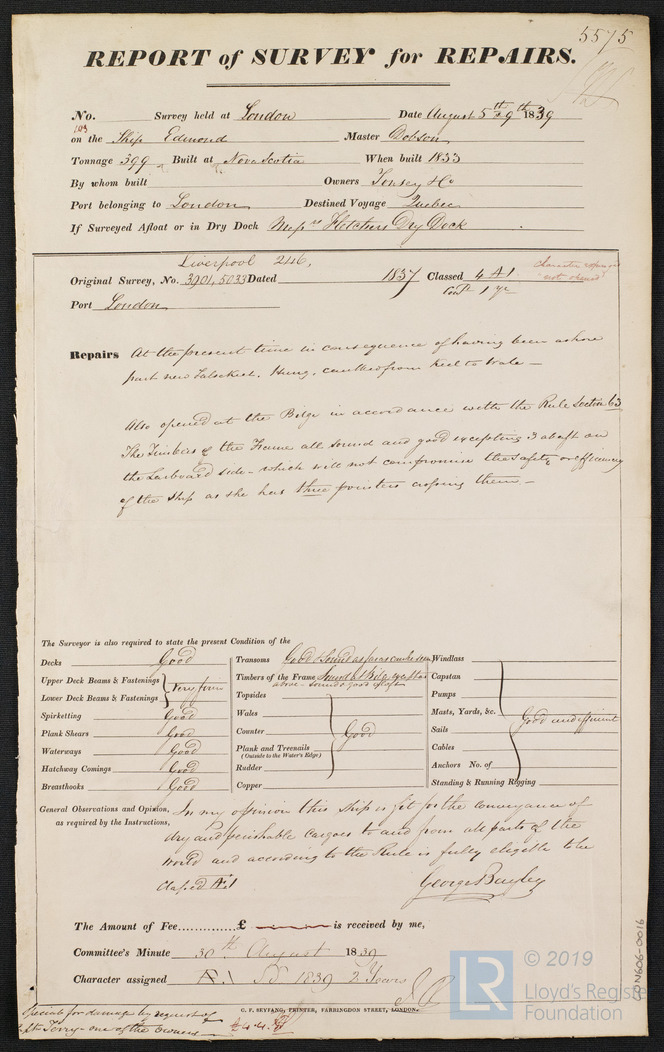 5575
REPORT of SURVEY for REPAIRS.
No. Survey held at London Date August 5th & 9th 1839
on the Ship Edmond Master Dobson
Tonnage 399 Built at Nova Scotia When built 1833
By whom built Owners & Co
Port belonging to London Destined Voyage Quebec
If Surveyed Afloat or in Dry Dock Messrs Fletchers Dry Dock
Liverpool 246,
Original Survey, No. 3901, 5033 Dated 1837 Classed 4 A 1
Cont 1 yr
not
Port London
Repairs At the present time in consequence of having been ashore
part new false keel. Hung, caulked from Keel to Wale
Also opened at the Bilge in accordance with the Rule Section 63
The Timbers of the Frame all sound and good excepting 3 abaft on
the Larboard side - which will not compromise the safety or efficiency
of the Ship as she has three pointers crossing them.
The Surveyor is also required to state the present Condition of the
Decks Good
Upper Deck Beams & Fastenings
Lower Deck Beams & Fastenings
Very firm
Spirketting Good
Plank Shears Good
Waterways Good
Hatchway Comings Good
Breasthooks Good
Transoms Good & Sound as far as can be seen
Timbers of the Frame Sound
above - sound & good
Topsides
Wales
Counter
Plank and Treenails
(Outside to the Water's Edge)
Rudder
Copper
Good
Windlass
Capstan
Pumps
Masts, Yards, &c.
Sails
Cables
Anchors No. of
Standing & Running Rigging
Good and efficient
General Observations and Opinion,
as required by the Instructions,
In my opinion this Ship is fit for the conveyance of
dry and perishable Cargoes to and from all parts of the
World and according to the Rule is fully eligible to be
Classed A.1
George Bayley
The Amount of Fee £ is received by me,
Committee's Minute 30th August 1839
Character assigned A.1 1839 2 Years
Special for damage by request of
Terry - one of the owners
C. F. SEYFANG, PRINTER, FARRINGDON STREET, LONDON.
£4.4.
LON606-0016
LR
© 2019
Lloyd's Register
Foundation